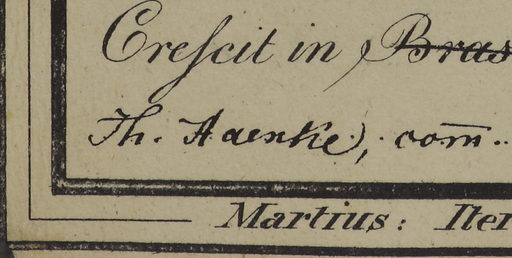 Creſcit in Bras
Th. Haenke, com̅.
Martius: Iter